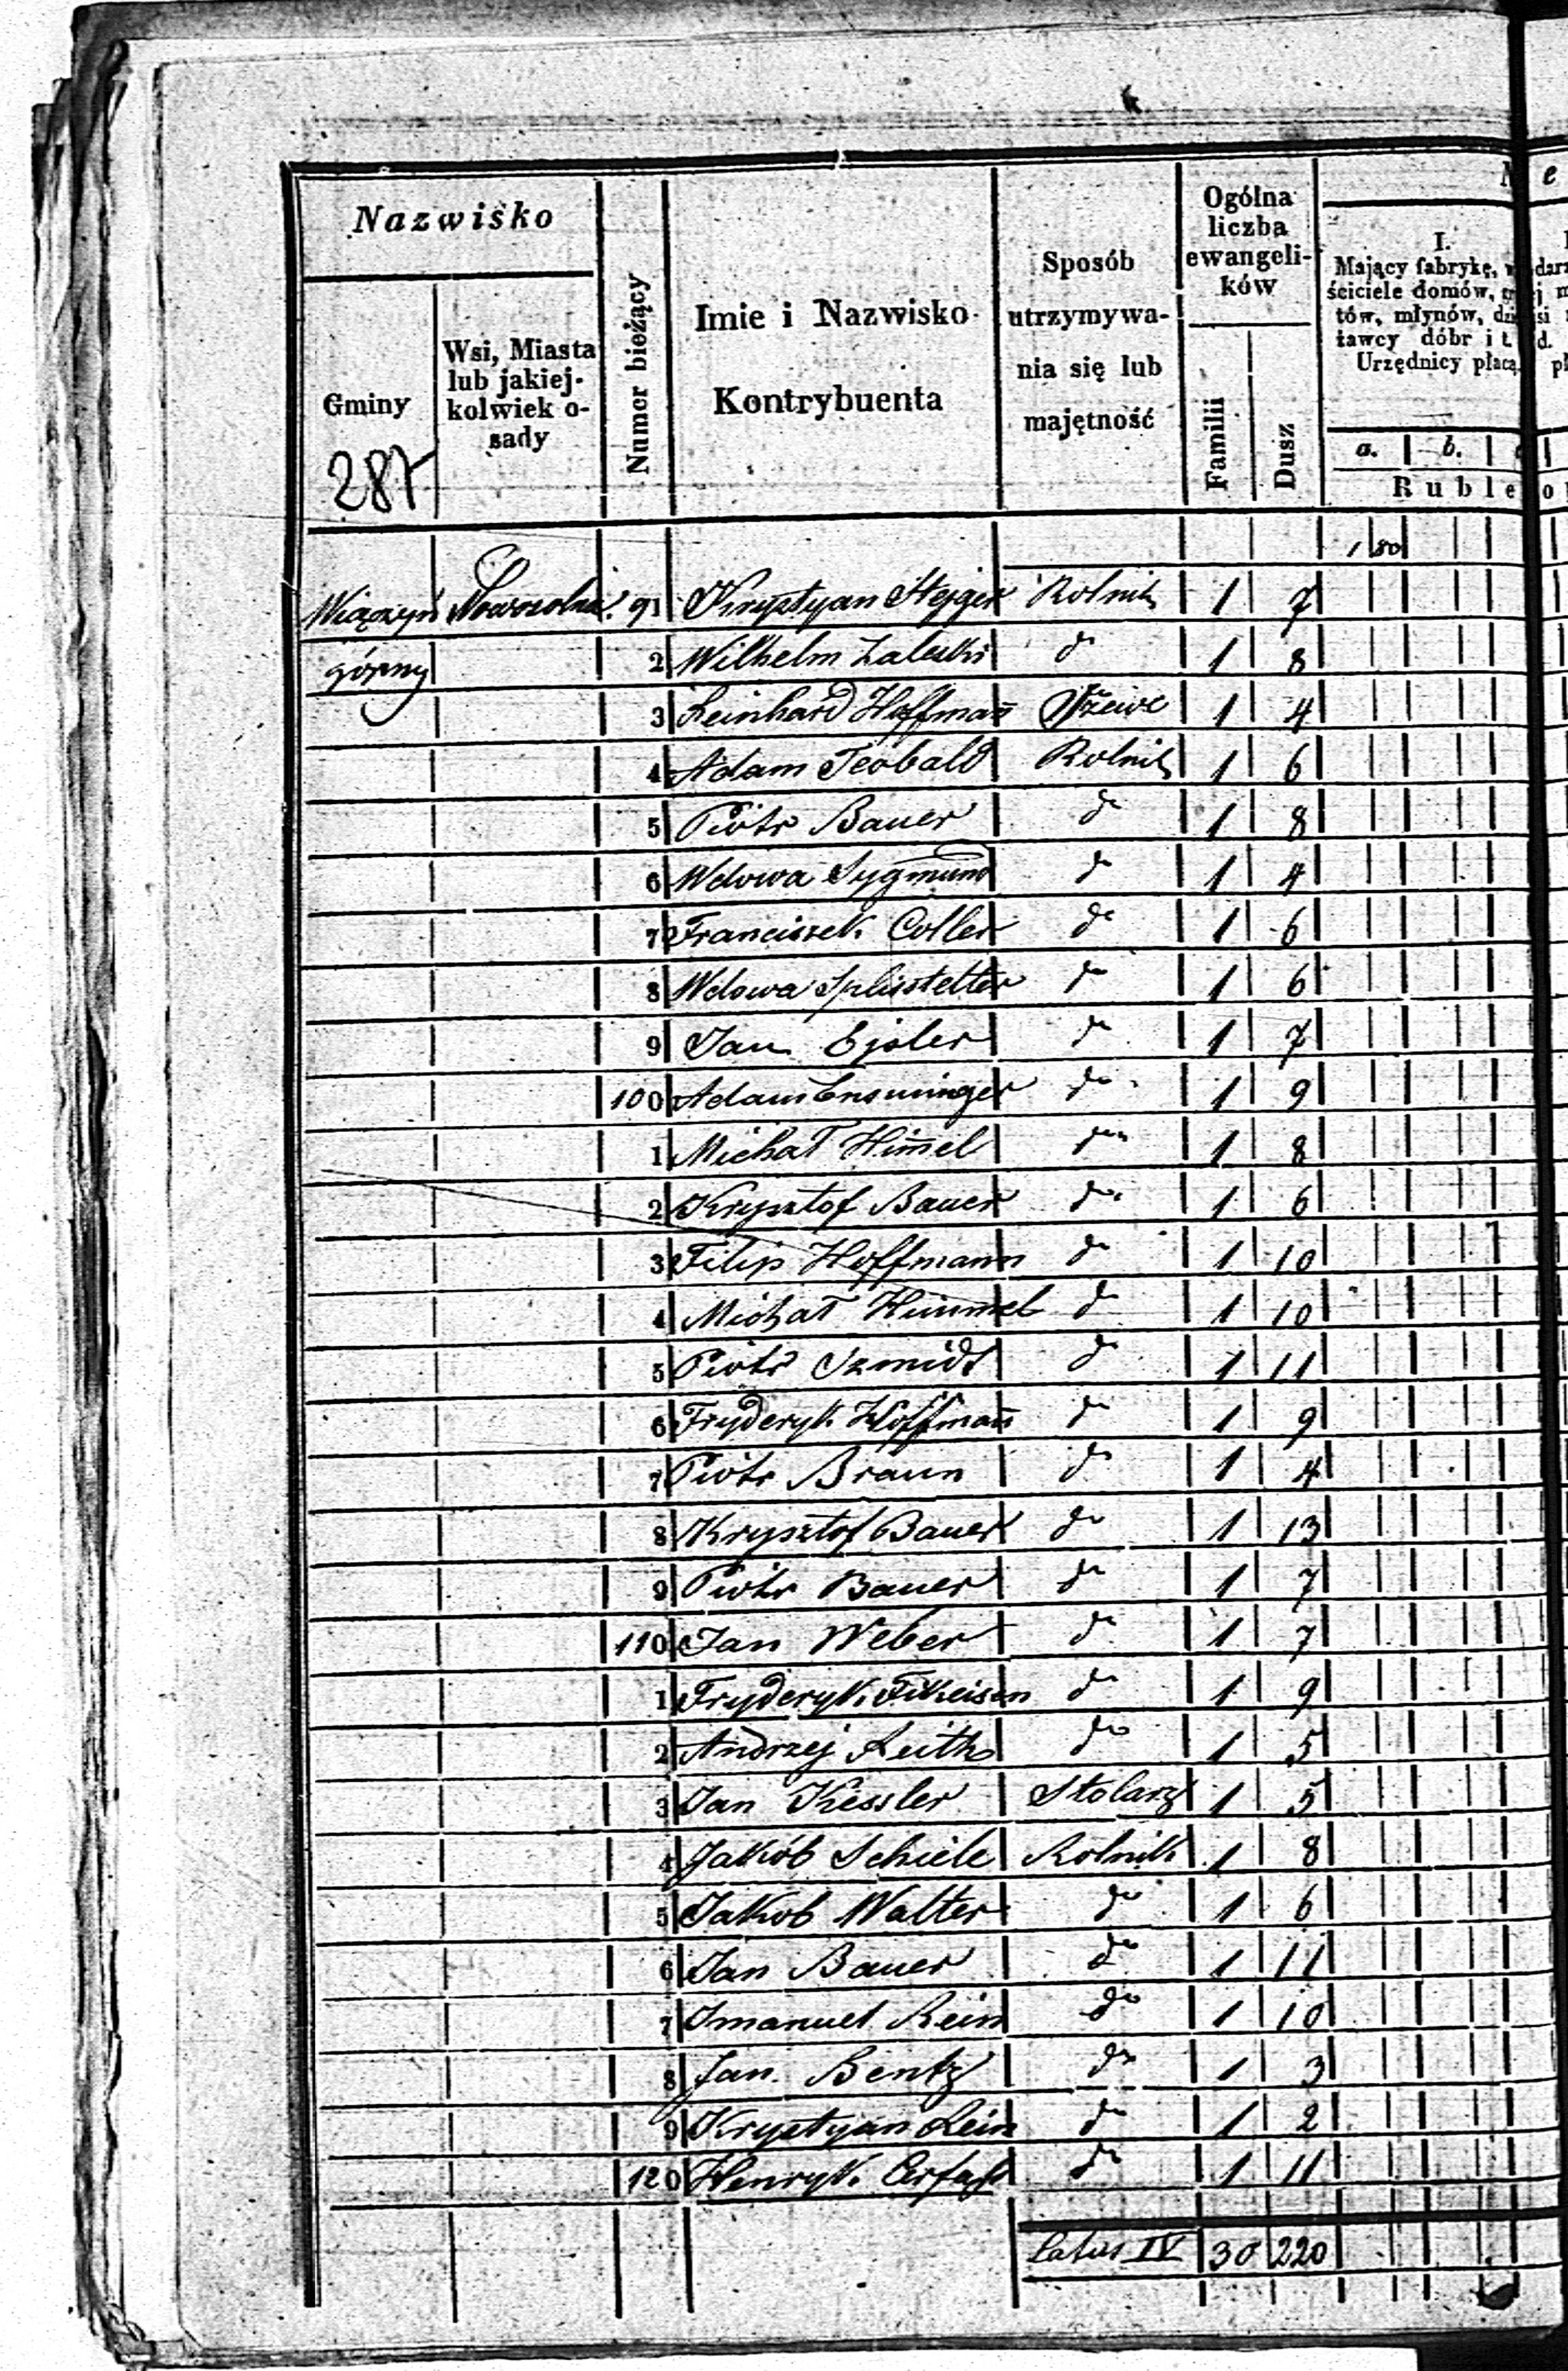 Nazwisko
Gminy
287
Wsi, Miasta
lub jakiej-
kolwiek o-
sady
Numer bieżący
Imie i Nazwisko
Kontrybuenta
Sposób
utrzymywa-
nia się lub
majętność
Ogólna
liczba
ewangeli-
ków
Familii
Dusz
I.
Mający fabrykę,
ściciele domów,
tów, młynów,
żawcy dóbr i t. d.
Urzędnicy płacą
a. b.
Rubl
1 80
Wiączyń Nowosolna 91 Krystyan Stejger Rolnik 1 7
górny 2 Wilhelm Zaleski do 1 8
3 Reinhard Hoffmañ 1 4
4 Adam Teobald Rolnik 1 6
5 Piotr Bauer do 1 8
6 Wdowa Sygmund do 1 4
7 Franciszek Coller do 1 6
8 Wdowa Splisstetter do 1 6
9 Jan Ejsler do 1 7
100 Adam Ensminger do 1 9
1 Michał Him̄el do 1 8
2 Krysztof Bauer do 1 6
3 Filip Hoffmann do 1 10
4 Michał Himmel do 1 10
5 Piotr Szmidt do 1 11
6 Fryderyk Hoffmañ do 1 9
7 Piotr Braun do 1 4
8 Krysztof Bauer do 1 13
9 Piotr Bauer do 1 7
110 Jan Weber do 1 7
1 Fryderyk Fikeisen do 1 9
2 Andrzej Reith do 1 5
3 Jan Kessler Stolarz 1 5
4 Jakób Schiele Rolnik 1 8
5 Jakob Walter do 1 6
6 Jan Bauer do 1 11
7 Imanuel Rein do 1 10
8 Jan Bentz do 1 3
9 Krystyan Rein do 1 2
120 Henryk do 1 11
Latus IV 30 220